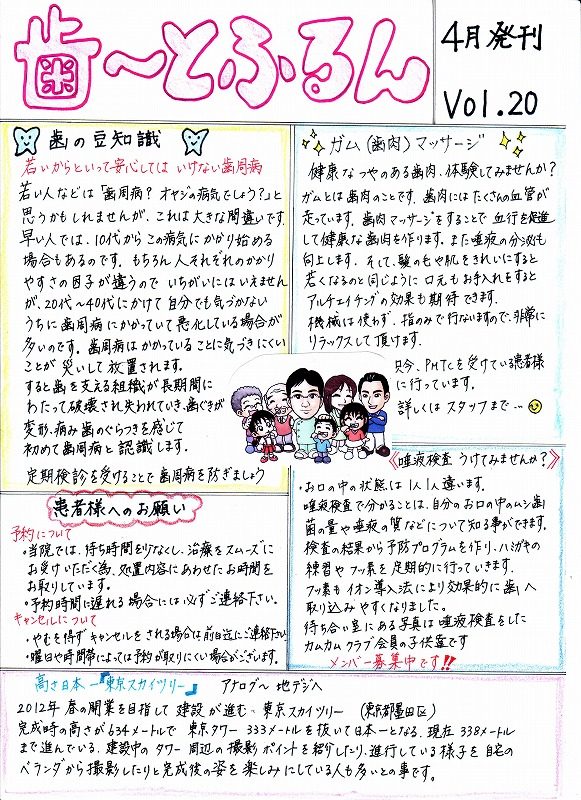 歯〜とふるん
4月発刊
Vol.20
歯の豆知識
若いからといって安心しては いけない歯周病
若い人などは「歯周病? オヤジの病気でしょう?」と
思うかもしれませんが、これは大きな間違いです。
早い人では、10代からこの病気にかかり始める
場合もあるのです。もちろん人それぞれのかかり
やすさの因子が違うので いちがいにはいえません
が、20代〜40代にかけて自分でも気づかない
うちに歯周病にかかっていて悪化している場合が
多いのです。歯周病はかかっていることに気づきにくい
ことが災いして放置されます。
すると歯を支える組織が長期間に
わたって破壊され失われていき、歯ぐきが
変形、痛み歯のぐらつきを感じて
初めて歯周病と認識します。
定期検診を受けることで歯周病を防ぎましょう
ガム(歯肉)マッサージ
健康なつやのある歯肉、体験してみませんか?
ガムとは歯肉のことです。歯肉にはたくさんの血管が
走っています。歯肉マッサージをすることで血行を促進
して健康な歯肉を作ります。また唾液の分泌も
向上します。そして、髪の毛や肌をきれいにすると
若くなるのと同じように口元もお手入れをすると
アルチエイチングの効果も期待できます。
機械は使わず、指のみで行ないますので、非常に
リラックスして頂けます。
只今、PMTCを受けている患者様
に行っています。
詳しくはスタッフまで…
患者様へのお願い
予約について
・当院では、待ち時間を少なくし、治療をスムーズに
お受けいただく為、処置内容にあわせたお時間を
お取りしています。
・予約時間に遅れる場合には必ずご連絡下さい。
キャンセルについて
・やむを得ずキャンセルをされる場合は前日迄にご連絡下さい。
・曜日や時間帯によっては予約が取りにくい場合がございます。
《唾液検査 うけてみませんか?》
・お口の中の状態は1人1人違います。
唾液検査で分かることは、自分のお口の中のムシ歯
菌の量や唾液の質などについて知る事ができます。
検査の結果から予防プログラムを作り、ハミガキの
練習やフッ素を定期的に行っていきます。
フッ素もイオン導入法により効果的に歯へ
取り込みやすくなりました。
待ち合い室にある写真は唾液検査をした
カムカムクラブ会員の子供達です
メンバー募集中です!!
高さ日本一『東京スカイツリー』 アナログ〜地デジへ
2012年 春の開業を目指して建設が進む、東京スカイツリー (東京都墨田区)
完成時の高さが634メートルで 東京タワー 333メートルを抜いて日本一となる。現在 338メートル
まで進んでいる。建設中のタワー周辺の撮影ポイントを紹介したり、進行している様子を自宅の
ベランダから撮影したりと完成後の姿を楽しみにしている人も多いとの事です。